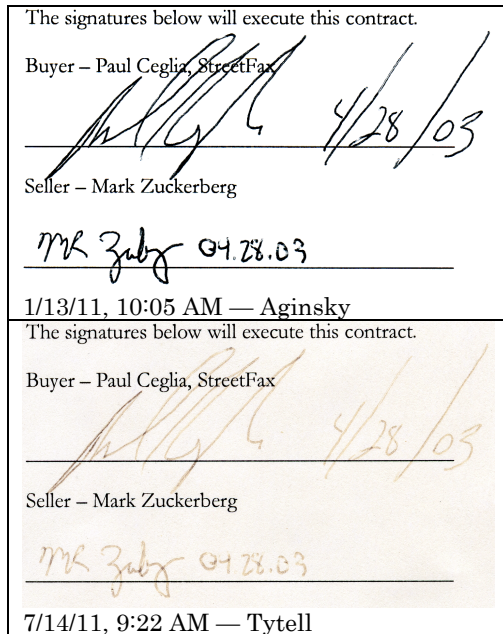 The signatures below will execute this contract.
Buyer – Paul Ceglia, StreetFax
4/28/03
Seller – Mark Zuckerberg
MR Zuby 04.28.03
1/13/11, 10:05 AM — Aginsky
The signatures below will execute this contract.
Buyer – Paul Ceglia, StreetFax
4/28/03
Seller – Mark Zuckerberg
MR Zuby 04.28.03
7/14/11, 9:22 AM — Tytell